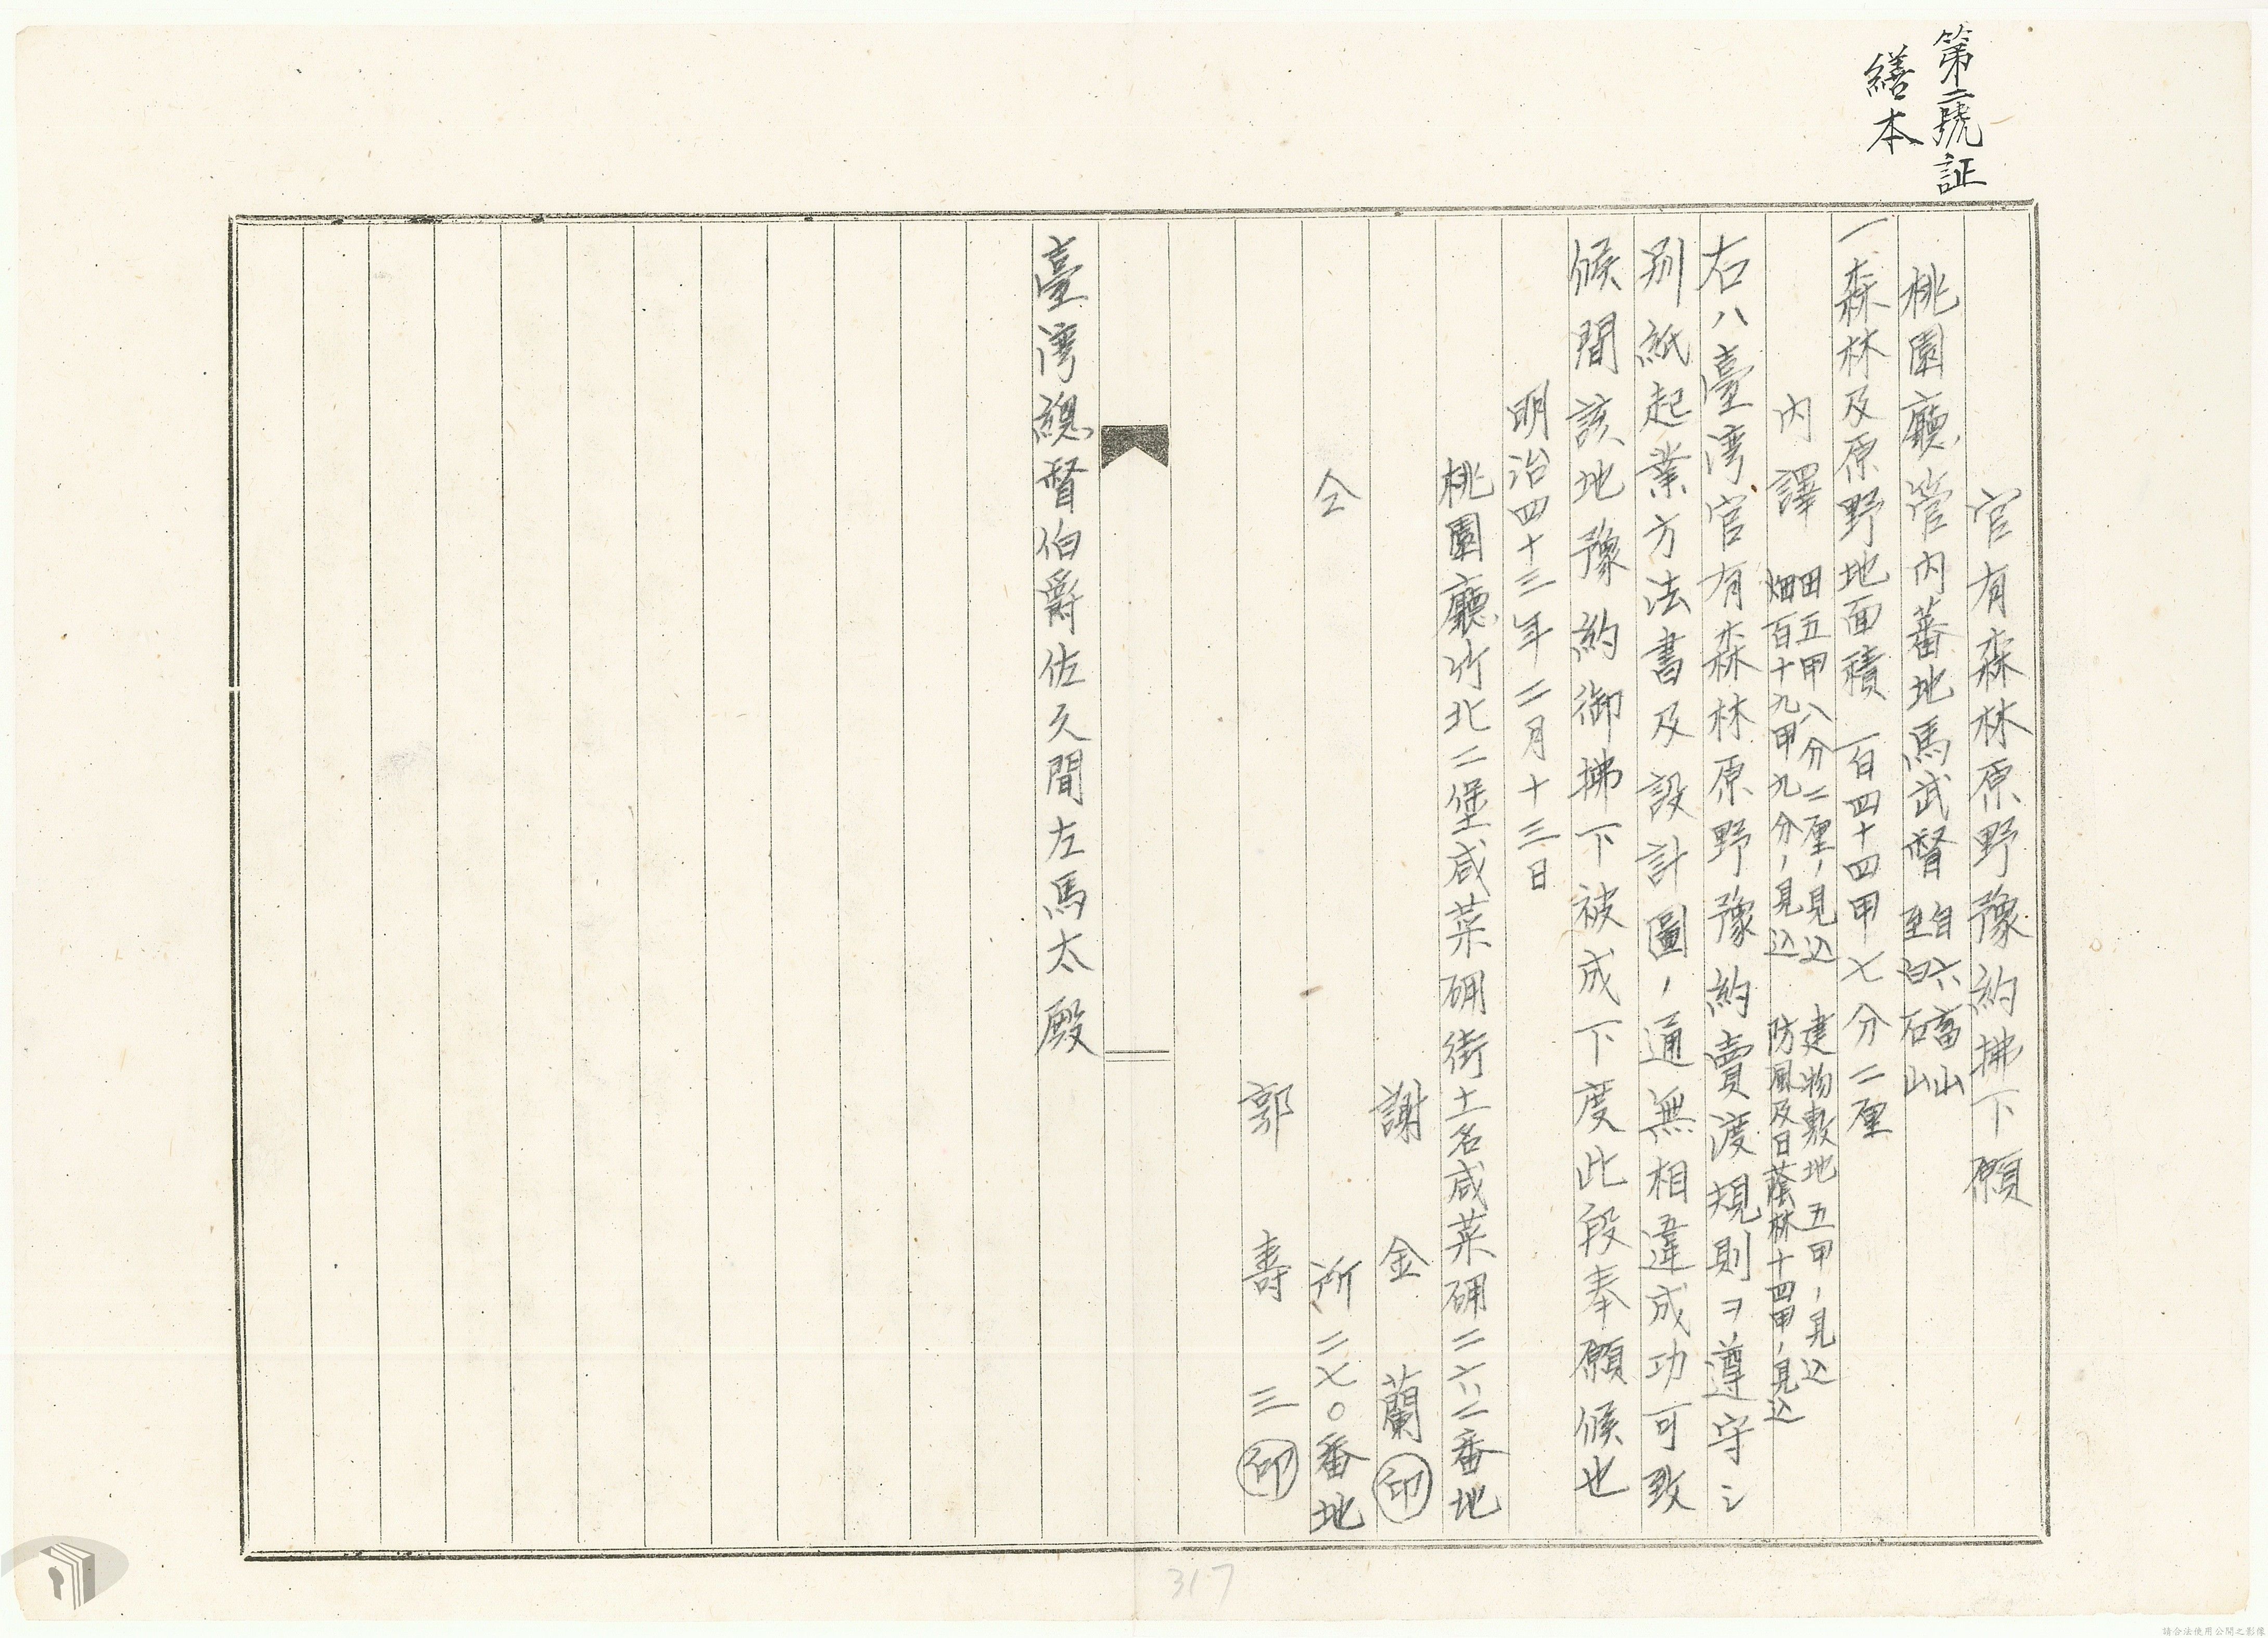 第二號証
繕本
官有森林原野豫約拂下願
桃園廳管内蕃地馬武督 自六畜山
至白石山
一、森林及原野地面積 一百四十四甲七分二厘
内譯 田五甲八分二厘ノ見込 建物敷地五甲ノ見込
畑百十九甲九分ノ見込 防風及日蔭林十四甲ノ見込
右ハ臺湾官有森林原野豫約賣渡規則ヲ遵守シ
別紙起業方法書及設計圖ノ通無相違成功可致
候間該地豫約御拂下被成下度此段奉願候也
明治四十三年二月十三日
桃園廳竹北二堡咸菜硼街土名咸菜硼二六二番地
謝金蘭㊞
仝所二七〇番地
郭壽三㊞
臺湾總督伯爵佐久間左馬太殿
317
請合法使用公開之影像